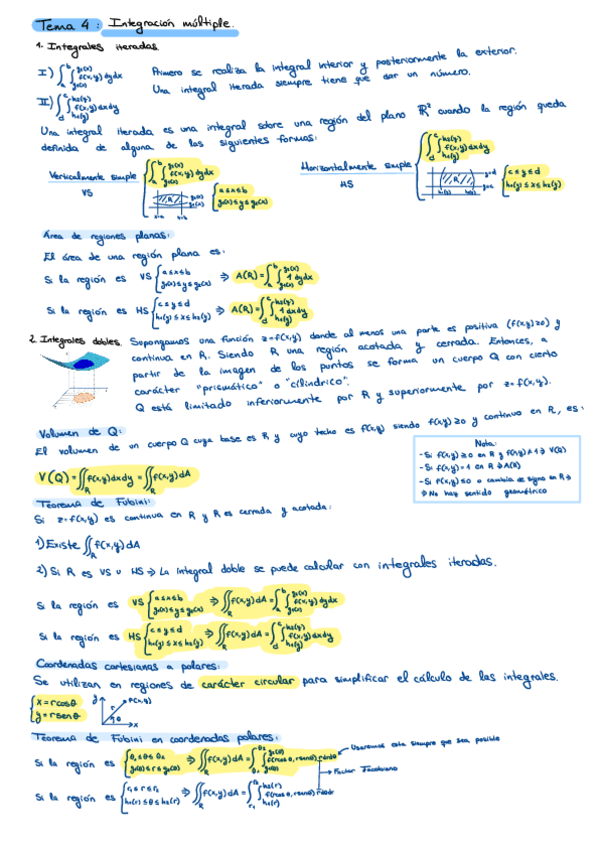 Tema 4: Integración múltiple.
1. Integrales iteradas.
I) ∫_a^b ∫_{g1(x)}^{g2(x)} f(x,y) dy dx
Primero se realiza la integral interior y posteriormente la exterior.
Una integral iterada siempre tiene que dar un número.
II) ∫_d^c ∫_{h1(y)}^{h2(y)} f(x,y) dx dy
Una integral iterada es una integral sobre una región del plano ℝ² cuando la región queda
definida de alguna de las siguientes formas:
Verticalmente simple VS { ∫_a^b ∫_{g1(x)}^{g2(x)} f(x,y) dy dx
{ a≤x≤b
g1(x)≤y≤g2(x)
Horizontalmente simple HS { ∫_d^c ∫_{h1(y)}^{h2(y)} f(x,y) dx dy
{ c≤y≤d
h1(y)≤x≤h2(y)
Área de regiones planas:
El área de una región plana es:
Si la región es VS { a≤x≤b
g1(x)≤y≤g2(x) ⇒ A(R) = ∫_a^b ∫_{g1(x)}^{g2(x)} 1 dy dx
Si la región es HS { c≤y≤d
h1(y)≤x≤h2(y) ⇒ A(R) = ∫_d^c ∫_{h1(y)}^{h2(y)} 1 dx dy
2. Integrales dobles.
Supongamos una función z=f(x,y) donde al menos una parte es positiva (f(x,y)≥0) y
continua en R. Siendo R una región acotada y cerrada. Entonces, a
partir de la imagen de los puntos se forma un cuerpo Q con cierto
carácter "prismático" o "cilíndrico".
Q está limitado inferiormente por R y superiormente por z=f(x,y).
Volumen de Q:
El volumen de un cuerpo Q cuya base es R y cuyo techo es f(x,y) siendo f(x,y)≥0 y continua en R, es:
V(Q) = ∬_R f(x,y) dx dy = ∬_R f(x,y) dA
Nota:
- Si f(x,y)≥0 en R y f(x,y)≠1 ⇒ V(Q)
- Si f(x,y)=1 en R ⇒ A(R)
- Si f(x,y)≤0 o cambia de signo en R ⇒
⇒ No hay sentido geométrico
Teorema de Fubini:
Si z=f(x,y) es continua en R y R es cerrada y acotada:
1) Existe ∬_R f(x,y) dA
2) Si R es VS o HS ⇒ La integral doble se puede calcular con integrales iteradas.
Si la región es VS { a≤x≤b
g1(x)≤y≤g2(x) ⇒ ∬_R f(x,y) dA = ∫_a^b ∫_{g1(x)}^{g2(x)} f(x,y) dy dx
Si la región es HS { c≤y≤d
h1(y)≤x≤h2(y) ⇒ ∬_R f(x,y) dA = ∫_d^c ∫_{h1(y)}^{h2(y)} f(x,y) dx dy
Coordenadas cartesianas a polares:
Se utilizan en regiones de carácter circular para simplificar el cálculo de las integrales.
{ x = r cosθ
y = r senθ
y P(x,y) r θ x
Teorema de Fubini en coordenadas polares:
Si la región es { θ1≤θ≤θ2
g1(θ)≤r≤g2(θ) ⇒ ∬_R f(x,y) dA = ∫_{θ1}^{θ2} ∫_{g1(θ)}^{g2(θ)} f(r cosθ, r senθ) r dr dθ
Usaremos esta siempre que sea posible
Factor Jacobiano
Si la región es { r1≤r≤r2
h1(r)≤θ≤h2(r) ⇒ ∬_R f(x,y) dA = ∫_{r1}^{r2} ∫_{h1(r)}^{h2(r)} f(r cosθ, r senθ) r dθ dr